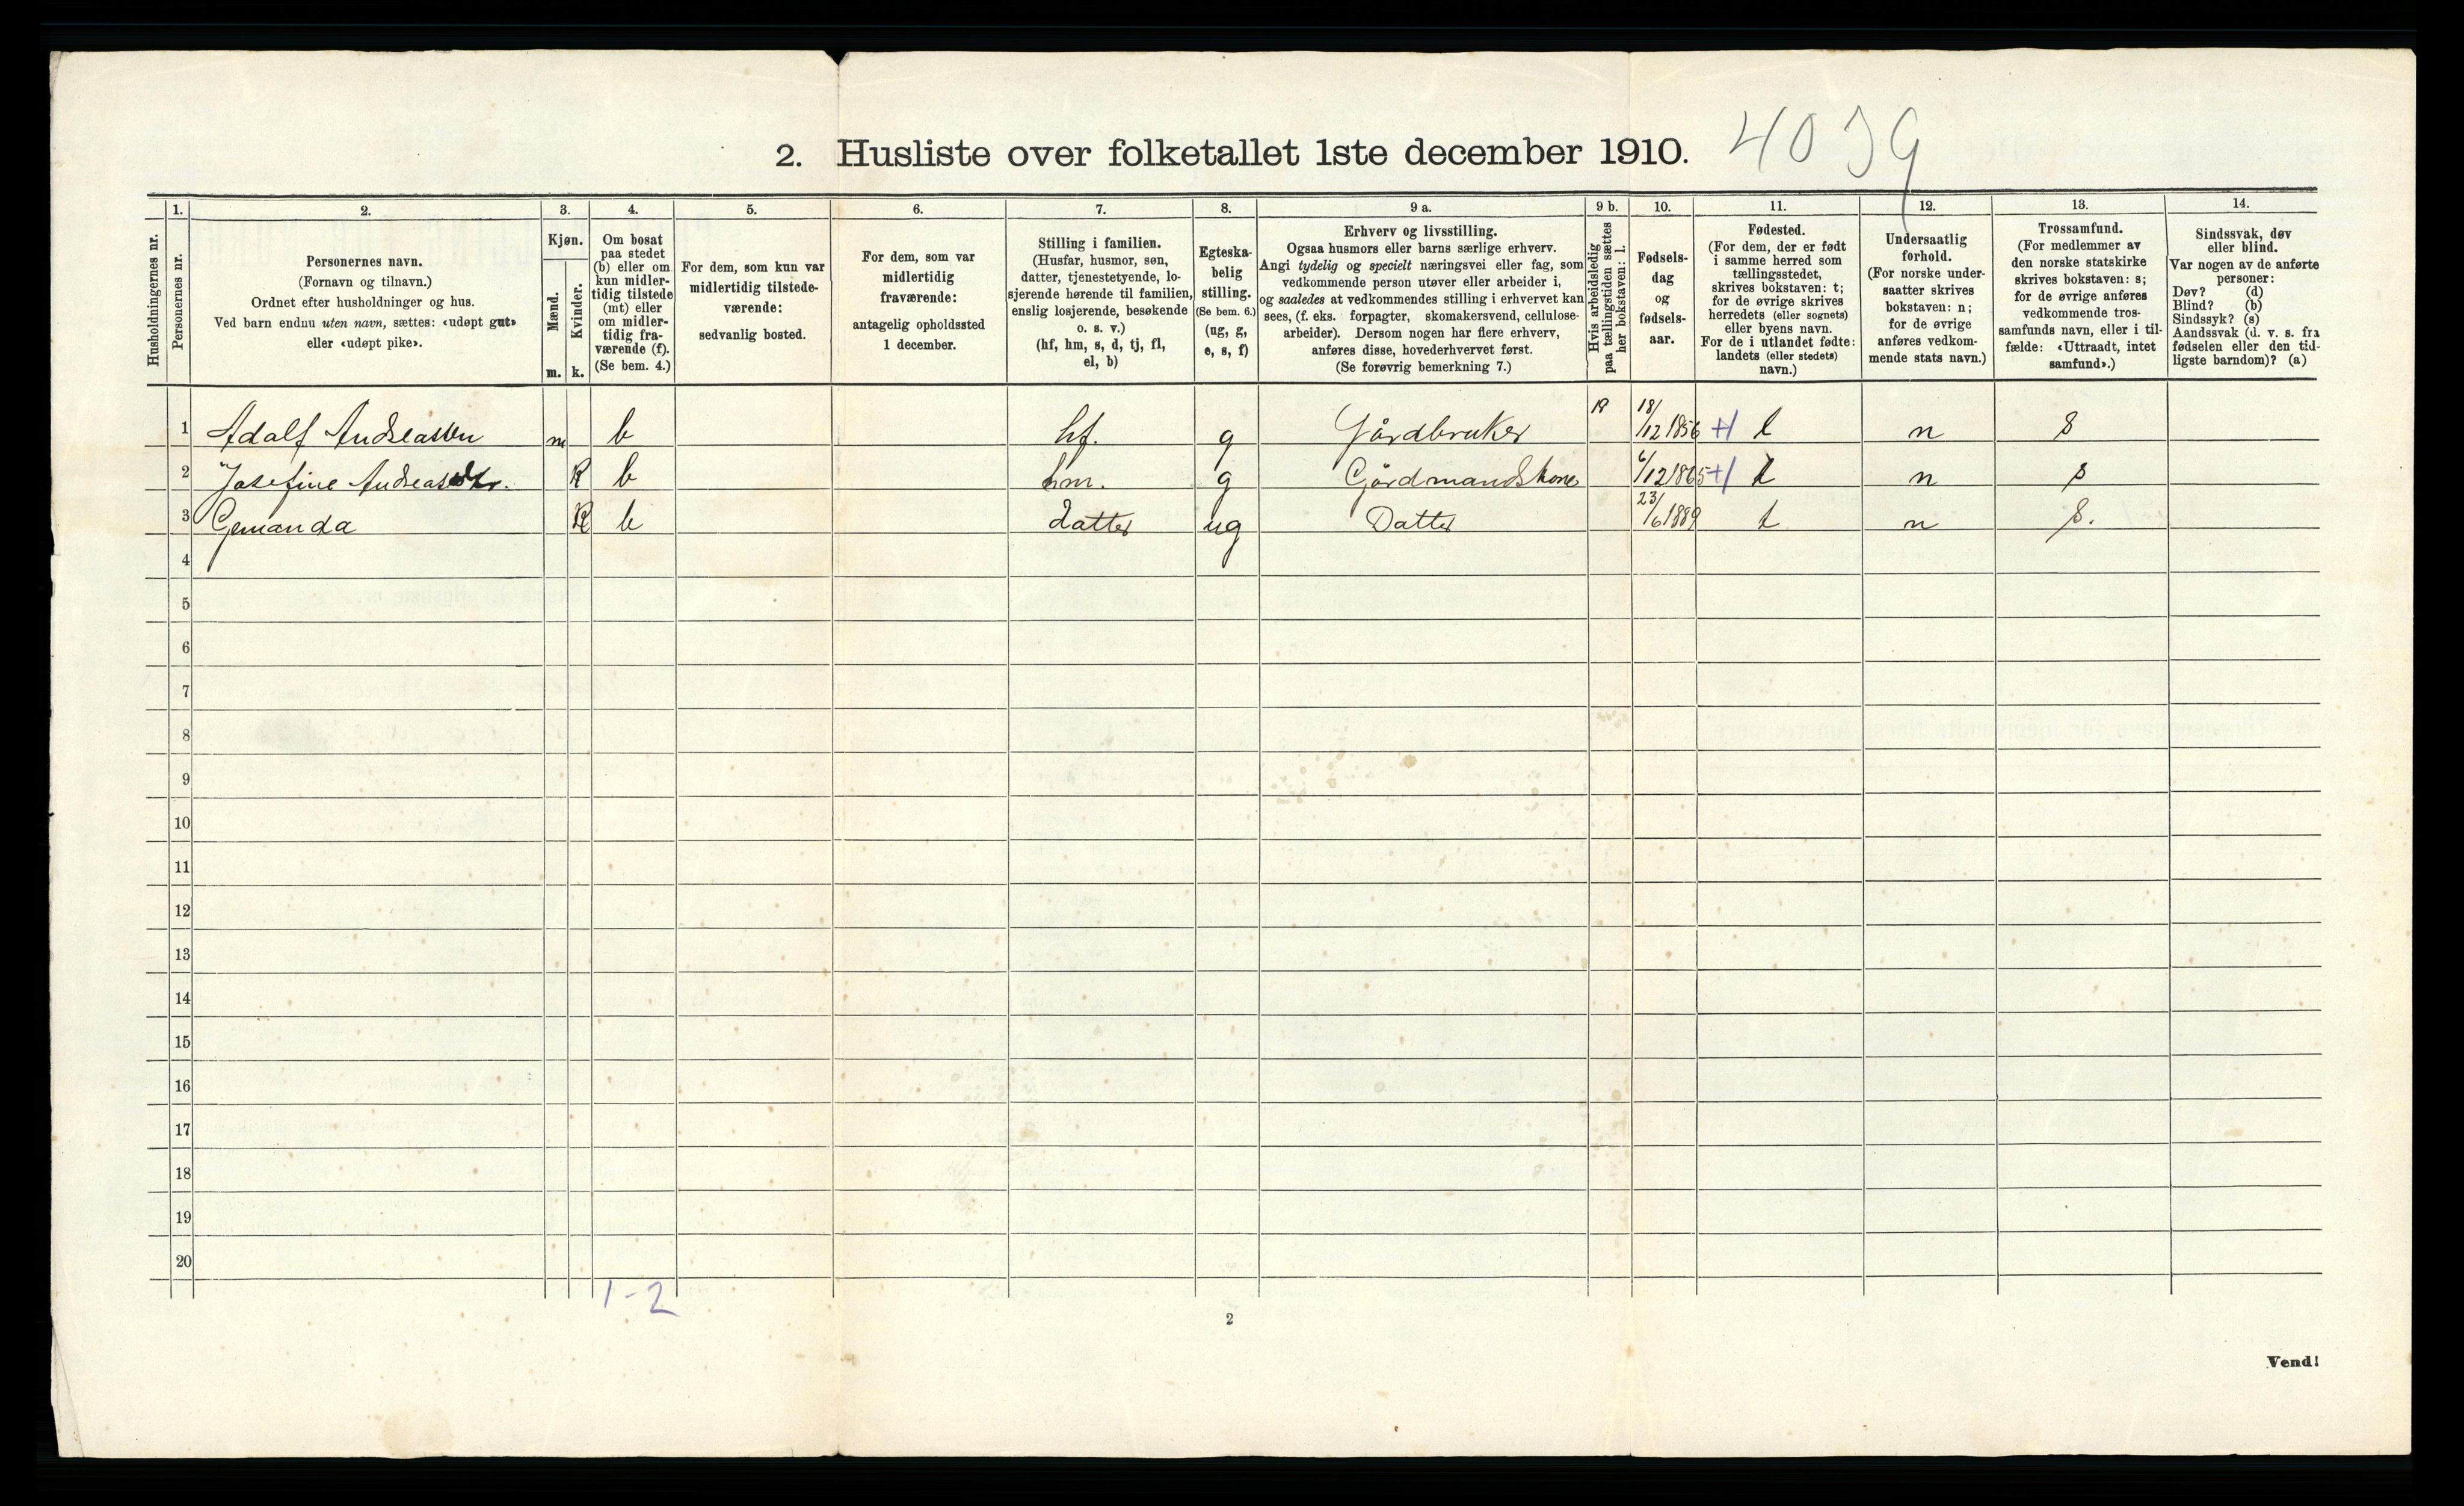 2. Husliste over folketallet 1ste december 1910. 4039
Husholdningernes nr.
1. Personernes nr.
2. Personernes navn. (Fornavn og tilnavn.) Ordnet efter husholdninger og hus. Ved barn endnu uten navn, sættes: «udøpt gut» eller «udøpt pike».
3. Kjøn. Mænd. m. Kvinder. k.
4. Om bosat paa stedet (b) eller om kun midlertidig tilstede (mt) eller om midlertidig fraværende (f). (Se bem. 4.)
5. For dem, som kun var midlertidig tilstedeværende: sedvanlig bosted.
6. For dem, som var midlertidig fraværende: antagelig opholdssted 1 december.
7. Stilling i familien. (Husfar, husmor, søn, datter, tjenestetyende, losjerende hørende til familien, enslig losjerende, besøkende o. s. v.) (hf, hm, s, d, tj, fl, el, b)
8. Egteskabelig stilling. (Se bem. 6.) (ug, g, e, s, f)
9 a. Erhverv og livsstilling. Ogsaa husmors eller barns særlige erhverv. Angi tydelig og specielt næringsvei eller fag, som vedkommende person utøver eller arbeider i, og saaledes at vedkommendes stilling i erhvervet kan sees, (f. eks. forpagter, skomakersvend, cellulosearbeider). Dersom nogen har flere erhverv, anføres disse, hovederhvervet først. (Se forøvrig bemerkning 7.)
9 b. Hvis arbeidsledig paa tællingstiden sættes her bokstaven: l.
10. Fødselsdag og fødselsaar.
11. Fødested. (For dem, der er født i samme herred som tællingsstedet, skrives bokstaven: t; for de øvrige skrives herredets (eller sognets) eller byens navn. For de i utlandet fødte: landets (eller stedets) navn.)
12. Undersaatlig forhold. (For norske undersaatter skrives bokstaven: n; for de øvrige anføres vedkommende stats navn.)
13. Trossamfund. (For medlemmer av den norske statskirke skrives bokstaven: s; for de øvrige anføres vedkommende trossamfunds navn, eller i tilfælde: «Uttraadt, intet samfund».)
14. Sindssvak, døv eller blind. Var nogen av de anførte personer: Døv? (d) Blind? (b) Sindssyk? (s) Aandssvak (d. v. s. fra fødselen eller den tidligste barndom)? (a)
1 Adalf Andreassen m b hf. g Gårdbruker 18/12 1856 +1 t n s
2 Josefine k b hm. g Gårdmandskone 6/12 1865 +1 t n s
3 Gemanda k b datter ug Datter 23/6 1889 t n s.
4
5
6
7
8
9
10
11
12
13
14
15
16
17
18
19
20
1-2
2
Vend!